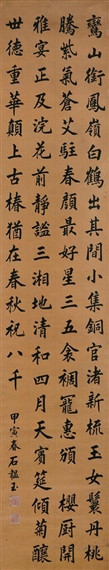 鸞山銜鳳嶺白鶴出其間小集銅官渚新梳玉女鬟丹桃
騰紫氣蒼艾駐春顏最好星三五衾裯寵惠頒 櫻廚開
雅宴正及浣花前靜謐三湘地清和四月天賓筵傾菊釀
世德重華顛上古椿猶在春秋祝八千
甲寅春石韞玉